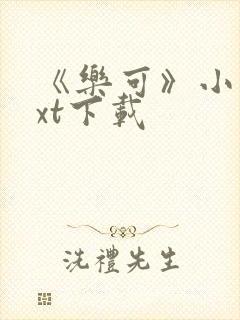 《樂可》小
xt下載
洗禮先生